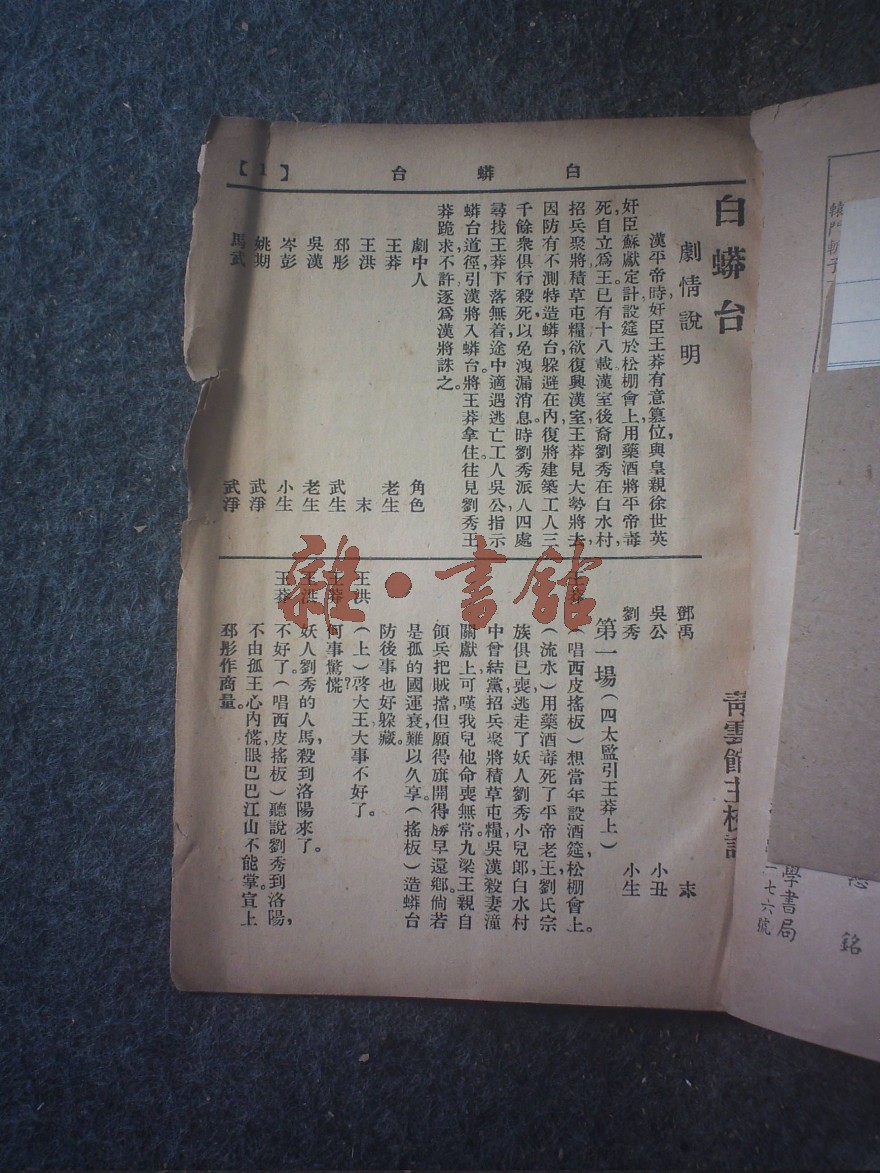 白蟒台
【1】
白蟒台
劇情說明
漢平帝時,奸臣王莽有意篡位,與皇親徐世英
奸臣蘇獻定計設筵於松棚會上,用藥酒將平帝毒
死,自立爲王,已有十八載,漢室後裔劉秀在白水村,
招兵聚將,積草屯糧,欲復興漢室,王莽見大勢將去,
因防有不測,特造蟒台,躲避在內,復將建築工人三
千餘衆,俱行殺死,以免洩漏消息。時劉秀派人四處
尋找王莽下落無着,途中適遇逃亡工人吳公指示
蟒台道徑,引漢將入蟒台。將王莽拿住。往見劉秀,王
莽跪求,不許,遂爲漢將誅之。
劇中人 角色
王莽 老生
王洪 末
邳彤 武生
吳漢 老生
岑彭 小生
姚期 武淨
馬武 武淨
鄧禹 末
吳公 小丑
劉秀 小生
第一場(四太監引王莽上)
王莽 (唱西皮搖板)想當年設酒筵,松棚會上。
(流水)用藥酒毒死了平帝老王,劉氏宗
族俱已喪,逃走了妖人劉秀小兒郎,白水村
中曾結黨,招兵聚將積草屯糧,吳漢殺妻潼
關獻上,可嘆我兒他命喪無常。九梁王親自
領兵把賊擋,但願得旗開得勝早還鄉。倘若
是孤的國運衰,難以久享(搖板)造蟒台
防後事也好躲藏。
王洪 (上)啓大王大事不好了。
王莽 何事驚慌?
王洪 妖人劉秀的人馬,殺到洛陽來了。
王莽 不好了。(唱西皮搖板)聽說劉秀到洛陽,
不由孤王心內慌,眼巴巴江山不能掌。宣上
邳彤作商量。
雜·書館
學書局
七六號
銘